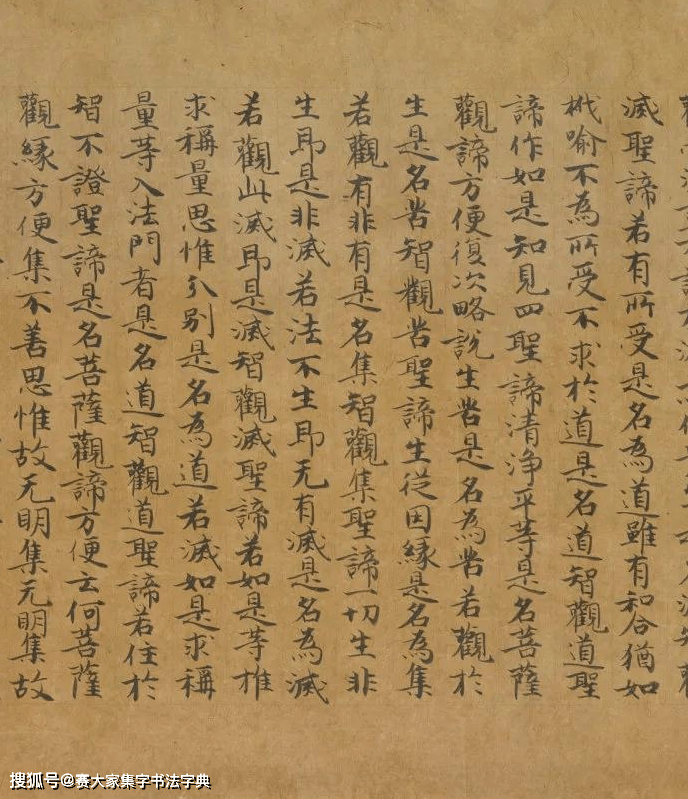 滅聖諦若有所受是名為道雖有和合猶如
栰喻不為所受不求於道是名道智觀道聖
諦作如是知見四聖諦清淨平等是名菩薩
觀諦方便復次略說生苦是名為苦若觀於
生是名苦智觀苦聖諦生從因緣是名為集
若觀有非有是名集智觀集聖諦一切生非
生即是非滅若法不生即无有滅是名為滅
若觀此滅即是滅智觀滅聖諦若如是等推
求稱量思惟分別是名為道若滅如是求稱
量等入法門者是名道智觀道聖諦若住於
智不證聖諦是名菩薩觀諦方便云何菩薩
觀緣方便集不善思惟故无明集无明集故
搜狐号@赛大家集字书法字典